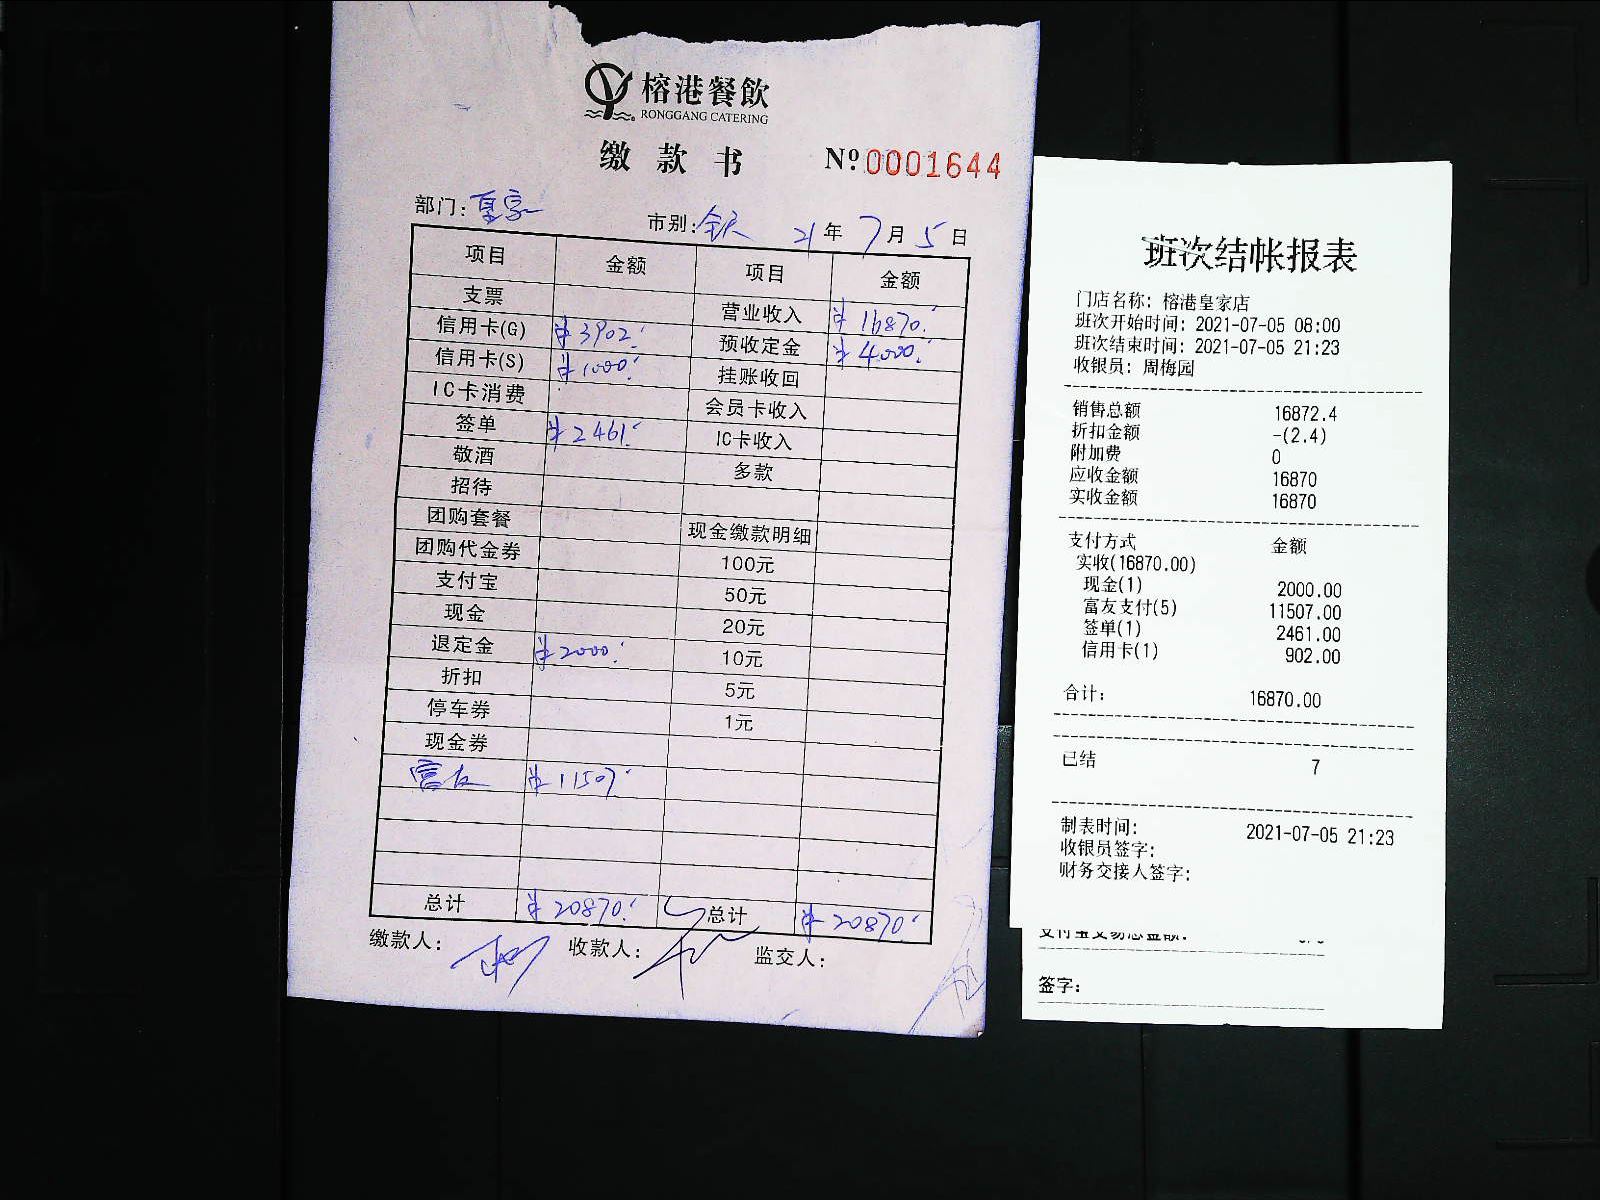 榕港餐飲
RONGGANG CATERING
缴款书 Nº 0001644
部门: 皇家 市别: 全天 21年7月5日
项目 金额 项目 金额
支票 营业收入 ¥16870.-
信用卡(G) ¥3902.- 预收定金 ¥4000.-
信用卡(S) ¥1000.- 挂账收回
IC卡消费 会员卡收入
签单 ¥2461.- IC卡收入
敬酒 多款
招待
团购套餐 现金缴款明细
团购代金券 100元
支付宝 50元
现金 20元
退定金 ¥2000.- 10元
折扣 5元
停车券 1元
现金券
富友 ¥11507.-
总计 ¥20870.- 总计 ¥20870.-
缴款人: 收款人: 监交人:
班次结帐报表
门店名称: 榕港皇家店
班次开始时间: 2021-07-05 08:00
班次结束时间: 2021-07-05 21:23
收银员: 周梅园
销售总额 16872.4
折扣金额 -(2.4)
附加费 0
应收金额 16870
实收金额 16870
支付方式 金额
实收(16870.00)
现金(1) 2000.00
富友支付(5) 11507.00
签单(1) 2461.00
信用卡(1) 902.00
合计: 16870.00
已结 7
制表时间: 2021-07-05 21:23
收银员签字:
财务交接人签字:
支付宝交易总金额:
签字: